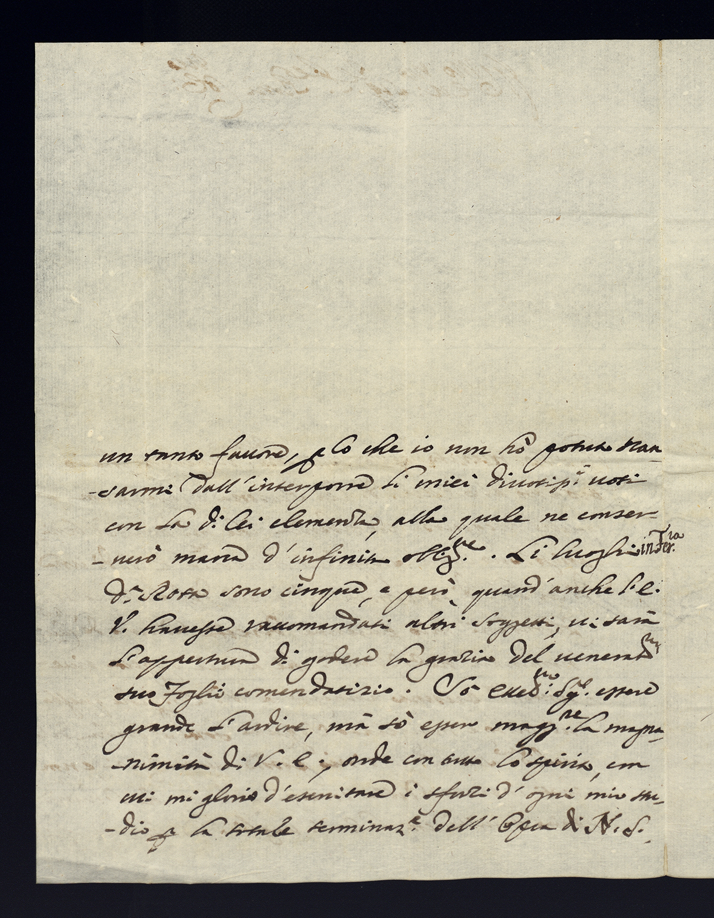 un tanto favore, p lo che io non hò potuto stan-
-carmi dall'interporre li miei divotis.mi voti
con la di lei clemenza, alla quale ne conser-
-verò marca d'infinite obblig.ne. Li luoghi in Fer.ra
di Rota sono cinque, e però, quand'anche l'E.
V. havesse raccomandati altri Soggetti, vi sarà
l'appertura di godere la grazia del venerat.mo
suo Foglio comendatizio. Sò essere
grande l'ardire, mà sò esser magg.re la magna-
-nimità di V. E., onde con tutto lo spirito, con
cui mi glorio d'esercitare i sforzi d'ogni mio stu-
-dio p la totale terminaz.e dell'Opera di N. S.